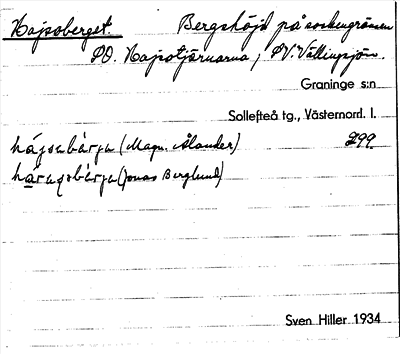 Hajsoberget. Bergshöjd på sockengränsen
SO. Hajsotjärnarna, SV. Vällingsjön.
Graninge s:n
Sollefteå tg., Västernorrl. l.
hájsabärja (Magn. Ålander) 299.
háragsbärja (Jonas Berglund)
Sven Hiller 1934